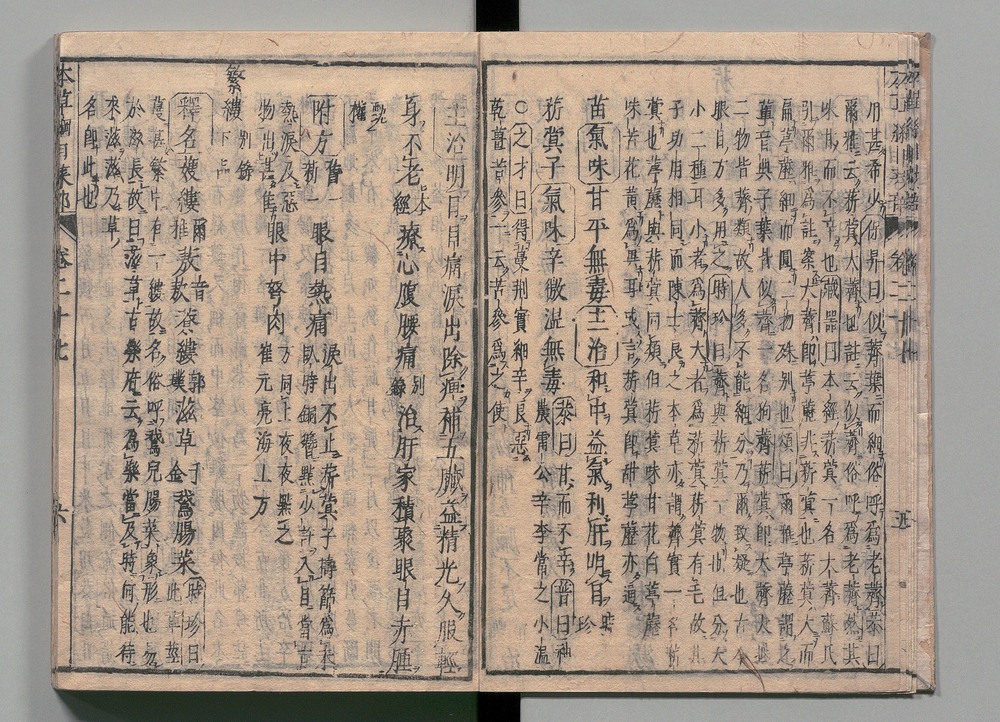 用甚希少保昇曰似薺葉而細俗呼爲老薺恭曰
爾雅云菥蓂大薺也註云似薺俗呼爲老薺然其
味甘而不辛也藏器曰本經菥蓂一名大薺蘇氏
引爾雅爲註案大薺卽葶藶非菥蓂也菥蓂大而
扁葶藶細而圓二物殊別也頌曰爾雅葶藶謂之
蕇音典子葉皆似薺一名狗薺菥蓂卽大薺大抵
二物皆薺類故人多不能細分乃爾致疑也古今
眼目方多用之時珍曰薺與菥蓂一物也但分大
小二種耳小者爲薺大者爲菥蓂菥蓂有毛故其
子功用相同而陳士良之本草亦謂薺實一名菥
蓂也葶藶與菥蓂同類但菥蓂味甘花白葶藶
味苦花黃爲異耳或言菥蓂卽甜葶藶亦通
苗氣味甘平無毒主治和中益氣利肝明目時珍
菥蓂子氣味辛微溫無毒恭曰甘而不辛普曰神農雷公辛李當之小溫
○之才曰得蔓荊實細辛良惡
乾薑苦參一云苦參爲之使
主治明目目痛淚出除痺補五臟益精光久服輕
身不老本經療心腹腰痛別錄治肝家積聚眼目赤腫
甄權
附方舊一新一眼目熱痛淚出不止菥蓂子搗篩爲末臥時銅簪點少許入目當有
熱淚及惡物出甚佳眼中弩肉方同上夜夜點之崔元亮海上方
繁縷別錄下品
釋名蘰縷爾雅音敖滋縷郭璞滋草千金鵞腸菜時珍曰此草莖
蔓甚繁中有一縷故名俗呼鵞兒腸菜象形也易
於滋長故曰滋草古樂府云爲樂當及時何能待
來滋滋乃草
名卽此也
本草綱目菜部
卷二十七
六